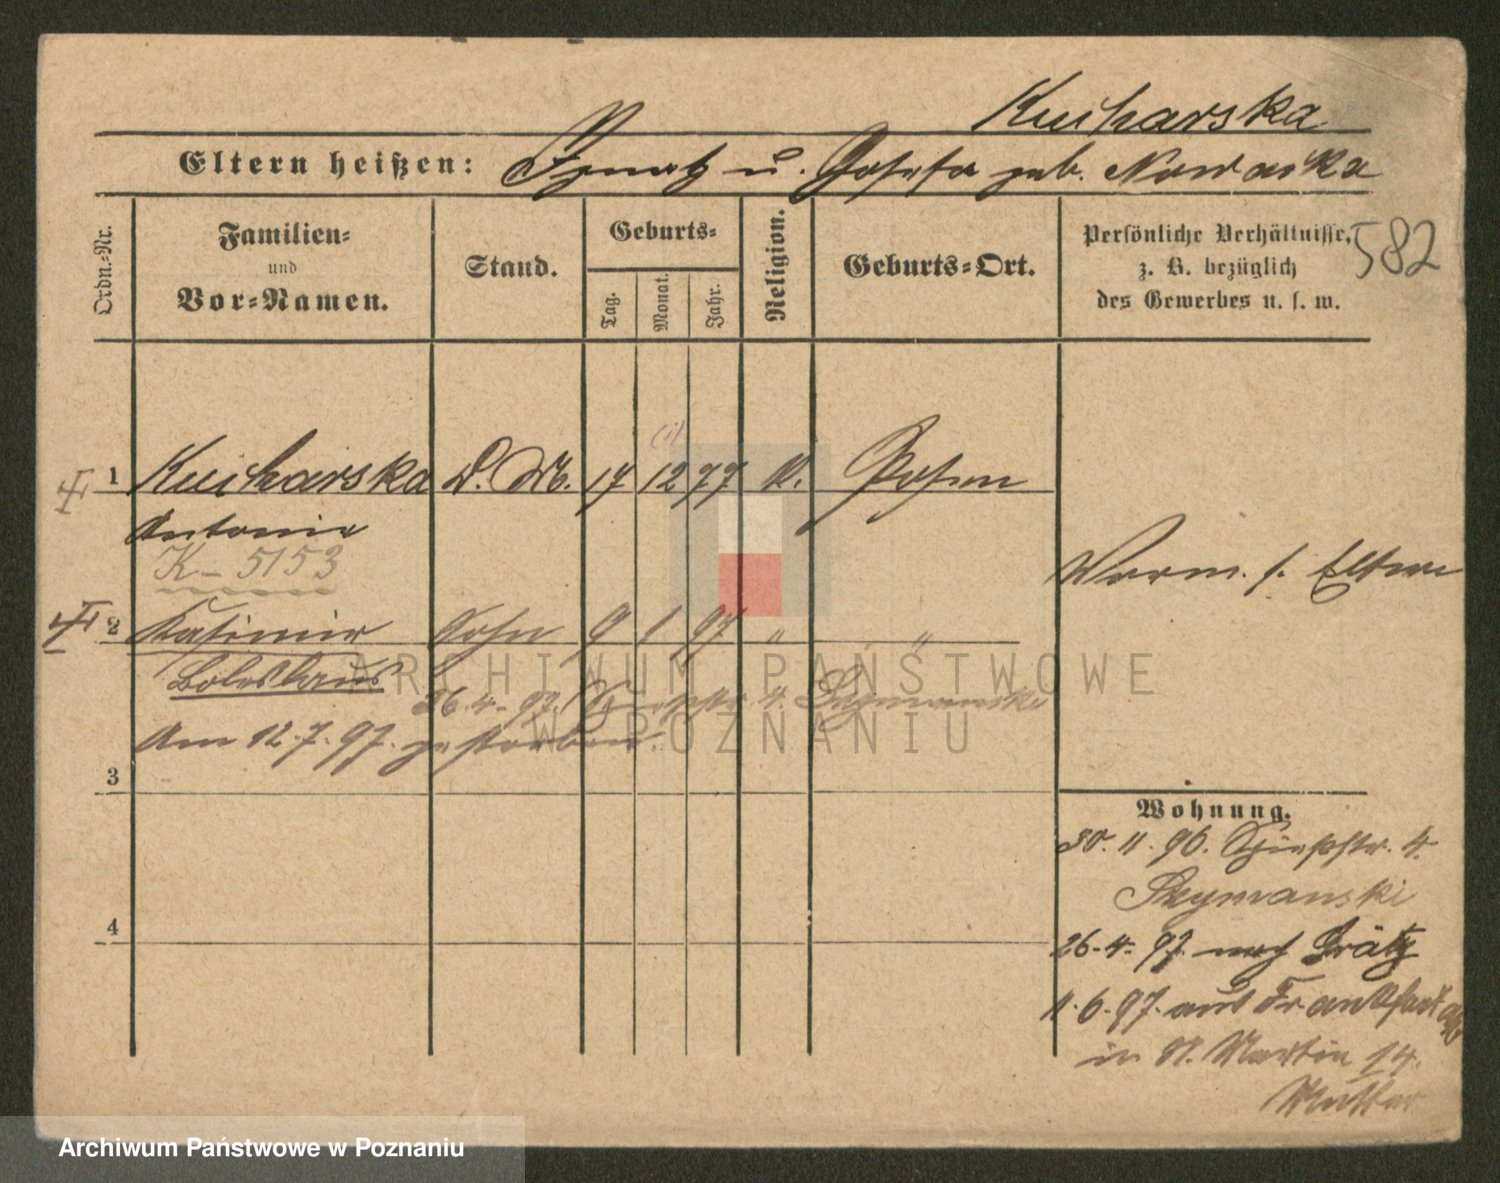 Kucharska
Eltern heißen: Ignatz u. Josefa geb. Nowaska
Ordn.-Nr. Familien- und Vor-Namen. Stand. Geburts- Tag. Monat. Jahr. Religion. Geburts-Ort. Persönliche Verhältnisse, z. B. bezüglich des Gewerbes u. s. w.
582
1 Kucharska D. M. 17 12 77 K. Posen
Antonie
K – 5153
Vorm. s. Eltern
2 Kasimir Sohn 9 1 97 " "
Boleslaus
26.4.97. 4. Szymanski
Am 12.7.97. gestorben.
3
4
Wohnung.
30.11.96. 4.
Szymanski
26.4.97. nach Grätz
11.6.97. aus Frankfurt a/O
in St. Martin 14.
Mutter
ARCHIWUM PAŃSTWOWE
W POZNANIU
Archiwum Państwowe w Poznaniu